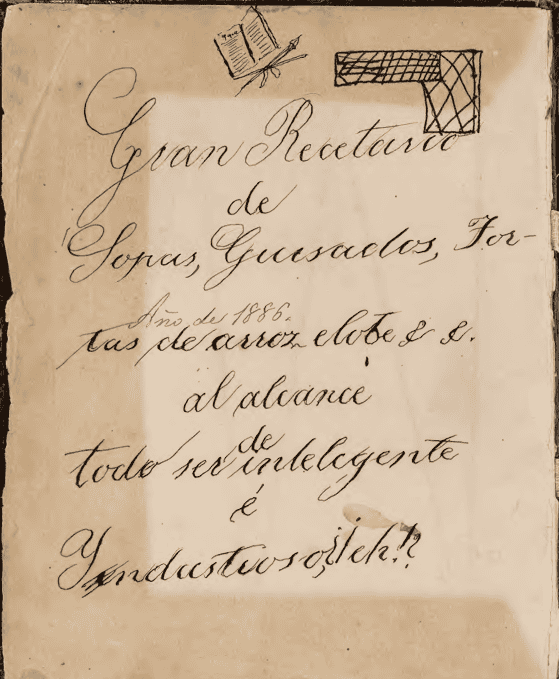 Gran Recetario
de
Sopas, Guisados, Tor-
Año de 1886.
tas de arroz elote & &.
al alcance
de
todo ser inteligente
é
Yndustrioso, ¡¡eh!!